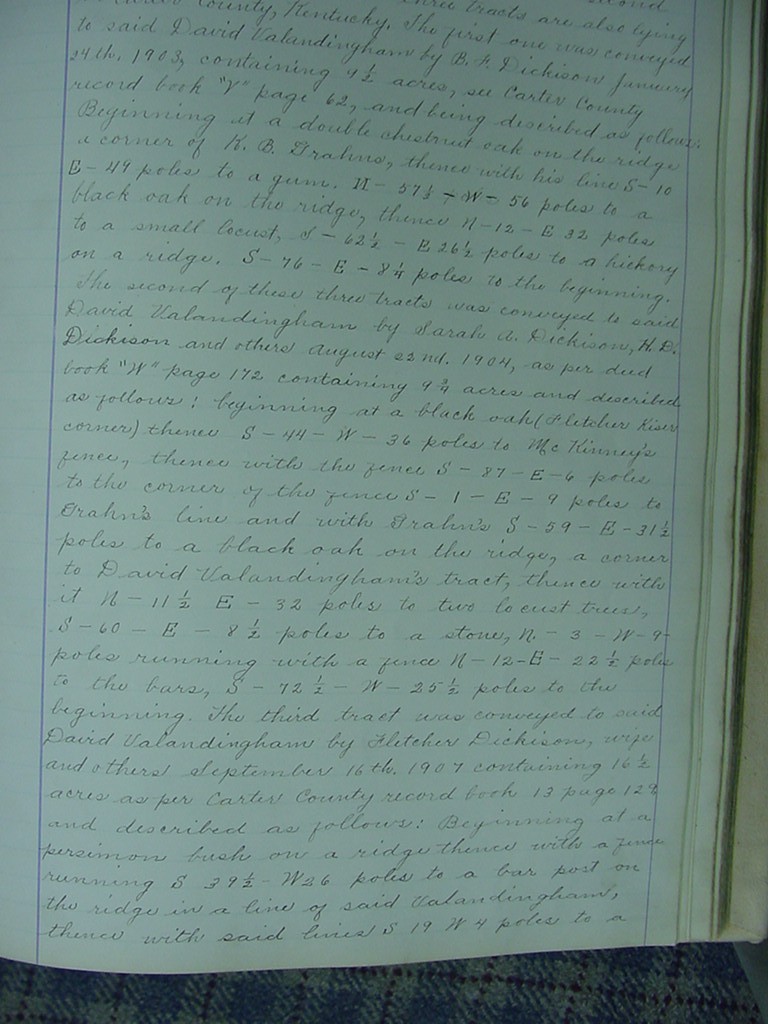 County, Kentucky. three tracts are also lying
to said David Valandingham by B. F. Dickison January The first one was conveyed
24th. 1903, containing 9 1/2 acres, see Carter County
record book "V" page 62, and being described as follows:
Beginning at a double chestnut oak on the ridge
a corner of K. B. Grahns, thence with his line S-10
E-49 poles to a gum. N-57 1/2-W-56 poles to a
black oak on the ridge, thence N-12-E 32 poles
to a small locust, S-62 1/2-E 26 1/2 poles to a hickory
on a ridge. S-76-E-8 1/4 poles to the beginning.
The second of these three tracts was conveyed to said
David Valandingham by Sarah A. Dickison, H. D.
Dickison and others August 22nd. 1904, as per deed
book "W" page 172 containing 9 3/4 acres and described
as follows: beginning at a black oak (Fletcher Kiser
corner) thence S-44-W-36 poles to McKinney's
fence, thence with the fence S-87-E-6 poles
to the corner of the fence S-1-E-9 poles to
Grahn's line and with Grahn's S-59-E-31 1/2
poles to a black oak on the ridge, a corner
to David Valandingham's tract, thence with
it N-11 1/2 E-32 poles to two locust trees,
S-60-E-8 1/2 poles to a stone, N.-3-W-9-
poles running with a fence N-12-E-22 1/2 poles
to the bars, S-72 1/2-W-25 1/2 poles to the
beginning. The third tract was conveyed to said
David Valandingham by Fletcher Dickison, wife
and others September 16th. 1907 containing 16 1/2
acres as per Carter County record book 13 page 128
and described as follows: Beginning at a
persimon bush on a ridge thence with a fence
running S 39 1/2-W26 poles to a bar post on
the ridge in a line of said Valandingham,
thence with said lines S 19 W 4 poles to a